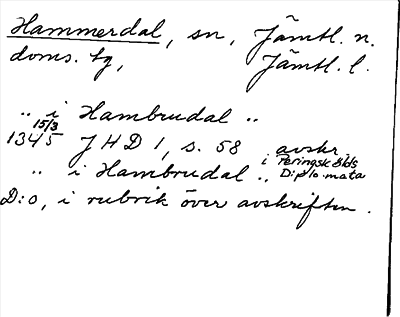 Hammerdal, sn, Jämtl. n.
doms. tg, Jämtl. l.
„ i Hambrudal „
15/3
1345 JHD 1, s. 58 avskr.
i Peringskölds
„ i Hambrudal „ Diplomata
D:o, i rubrik över avskriften.